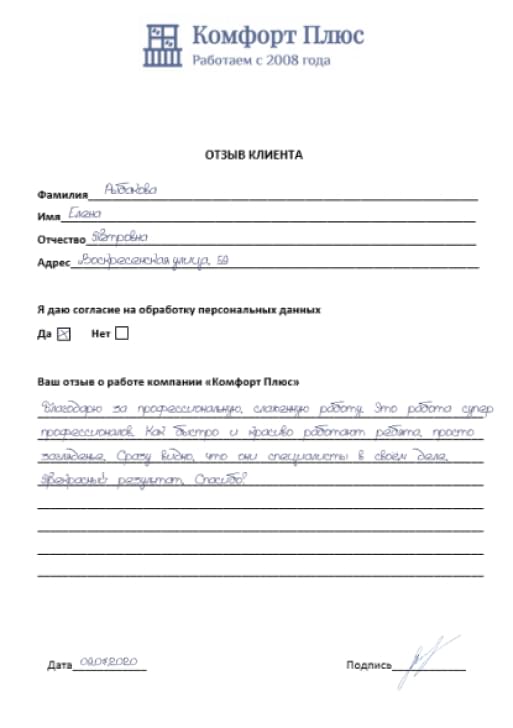 Комфорт Плюс
Работаем с 2008 года
ОТЗЫВ КЛИЕНТА
Фамилия
Имя Елена
Отчество Петровна
Адрес Воскресенская улица, 59
Я даю согласие на обработку персональных данных
Да ☒ Нет ☐
Ваш отзыв о работе компании «Комфорт Плюс»
Благодарю за профессиональную, слаженную работу. Это работа супер
профессионалов. Как быстро и красиво работают ребята, просто
загляденье. Сразу видно, что они специалисты в своем деле.
Прекрасный результат. Спасибо!
Дата
Подпись